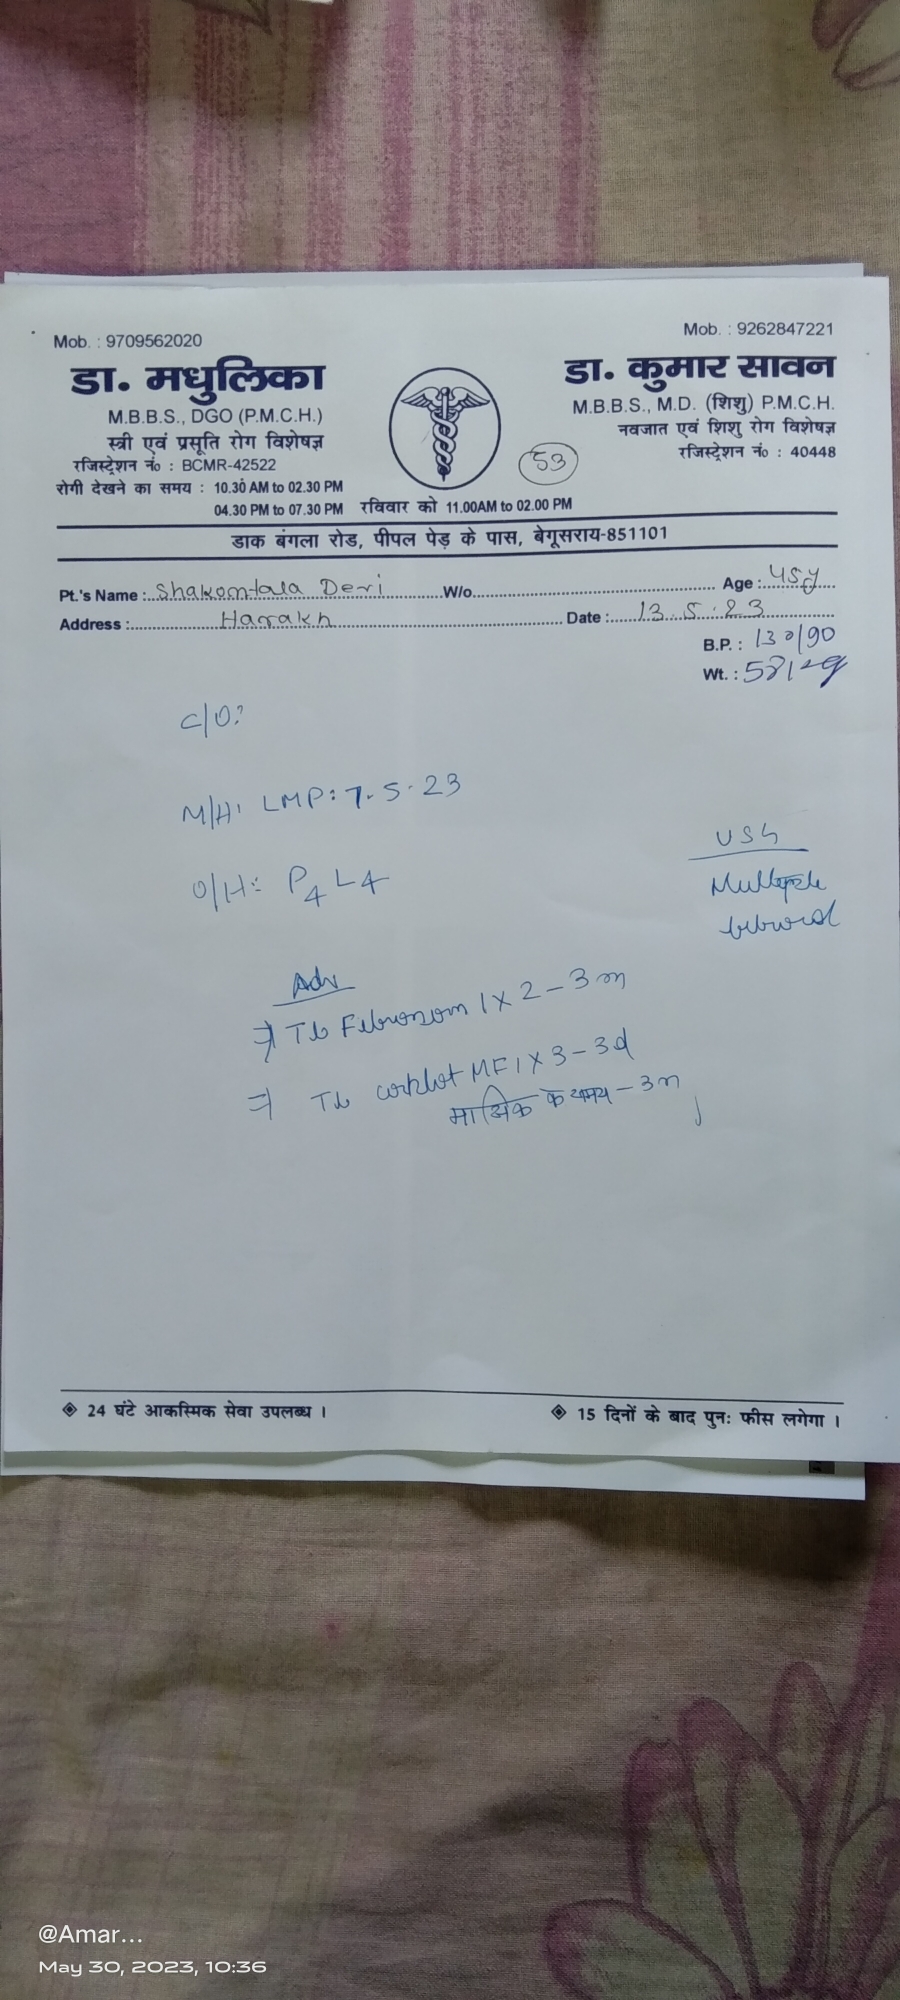 Mob. : 9709562020
डा. मधुलिका
M.B.B.S., DGO (P.M.C.H.)
स्त्री एवं प्रसूति रोग विशेषज्ञ
रजिस्ट्रेशन नं० : BCMR-42522
Mob. : 9262847221
डा. कुमार सावन
M.B.B.S., M.D. (शिशु) P.M.C.H.
नवजात एवं शिशु रोग विशेषज्ञ
रजिस्ट्रेशन नं० : 40448
53
रोगी देखने का समय : 10.30 AM to 02.30 PM
04.30 PM to 07.30 PM रविवार को 11.00AM to 02.00 PM
डाक बंगला रोड, पीपल पेड़ के पास, बेगूसराय-851101
Pt.'s Name : Shakomtala Devi W/o Age : 45y
Address : Harrakh Date : 13.5.23
B.P. : 130/90
Wt. : 58kg
C/O:
M/H: LMP: 7.5.23
O/H: P4L4
USG
Multiple
Adv
=) Tb 1x2-3m
=) Tb MF 1x3-3d
मासिक के समय - 3m
24 घंटे आकस्मिक सेवा उपलब्ध ।
15 दिनों के बाद पुनः फीस लगेगा ।
@Amar...
May 30, 2023, 10:36